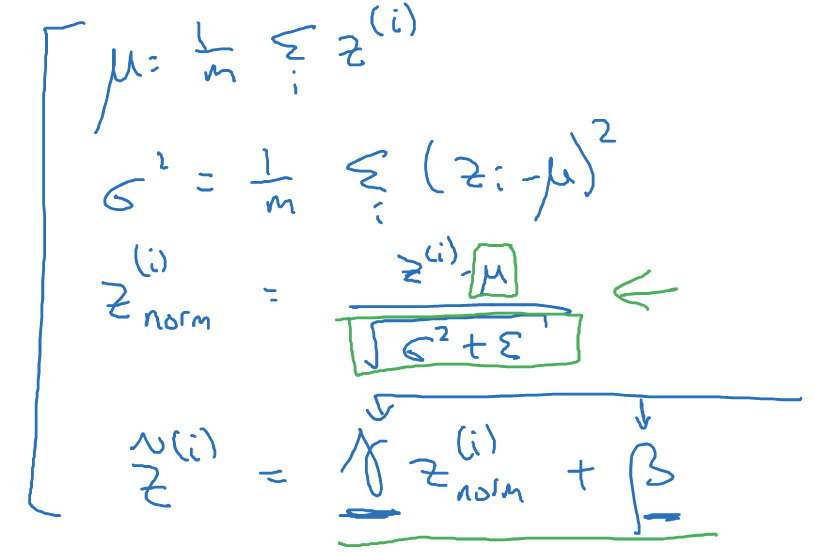 μ = 1/m Σ_i z^(i)
σ² = 1/m Σ_i (z_i - μ)²
z^(i)_norm = (z^(i) - μ) / √(σ² + ε)
z̃^(i) = γ z^(i)_norm + β